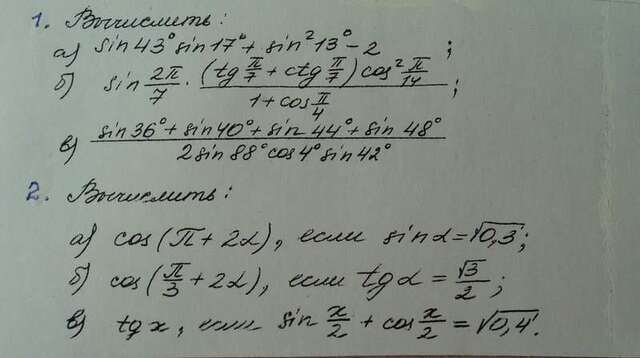 1. Вычислить:
а) sin43° sin17° + sin²13° − 2 ;
б) sin 2π/7 · ((tg π/7 + ctg π/7) cos² π/14)/(1 + cos π/4) ;
в) (sin36° + sin40° + sin44° + sin48°)/(2 sin88° cos4° sin42°)
2. Вычислить:
а) cos(π + 2α), если sin α = √0,3 ;
б) cos(π/3 + 2α), если tg α = √3/2 ;
в) tg x, если sin x/2 + cos x/2 = √0,4 .